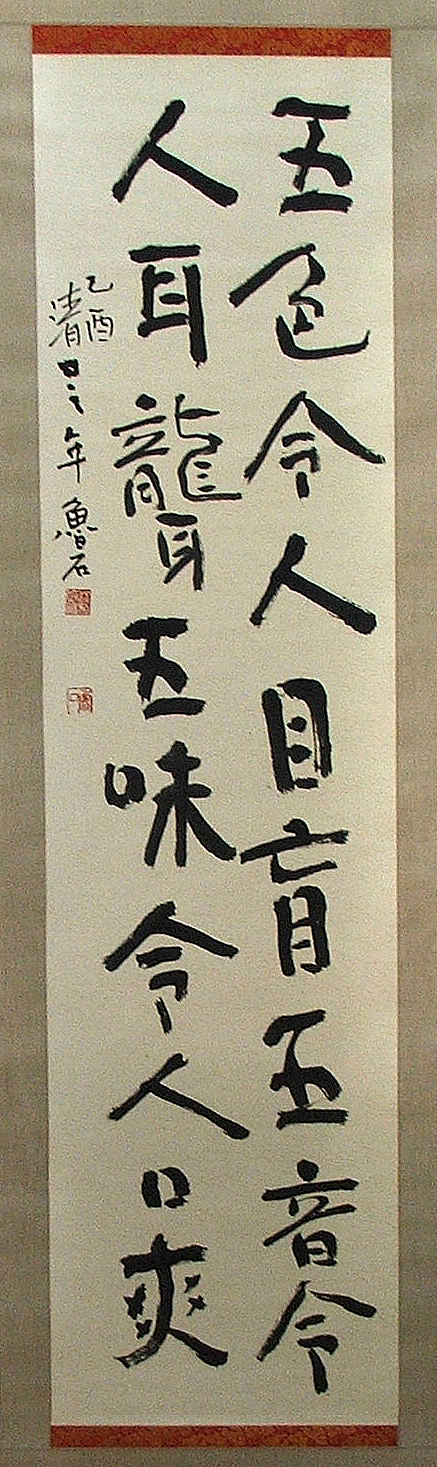 五色令人目盲五音令
人耳聾五味令人口爽
乙酉
清明之年魯石